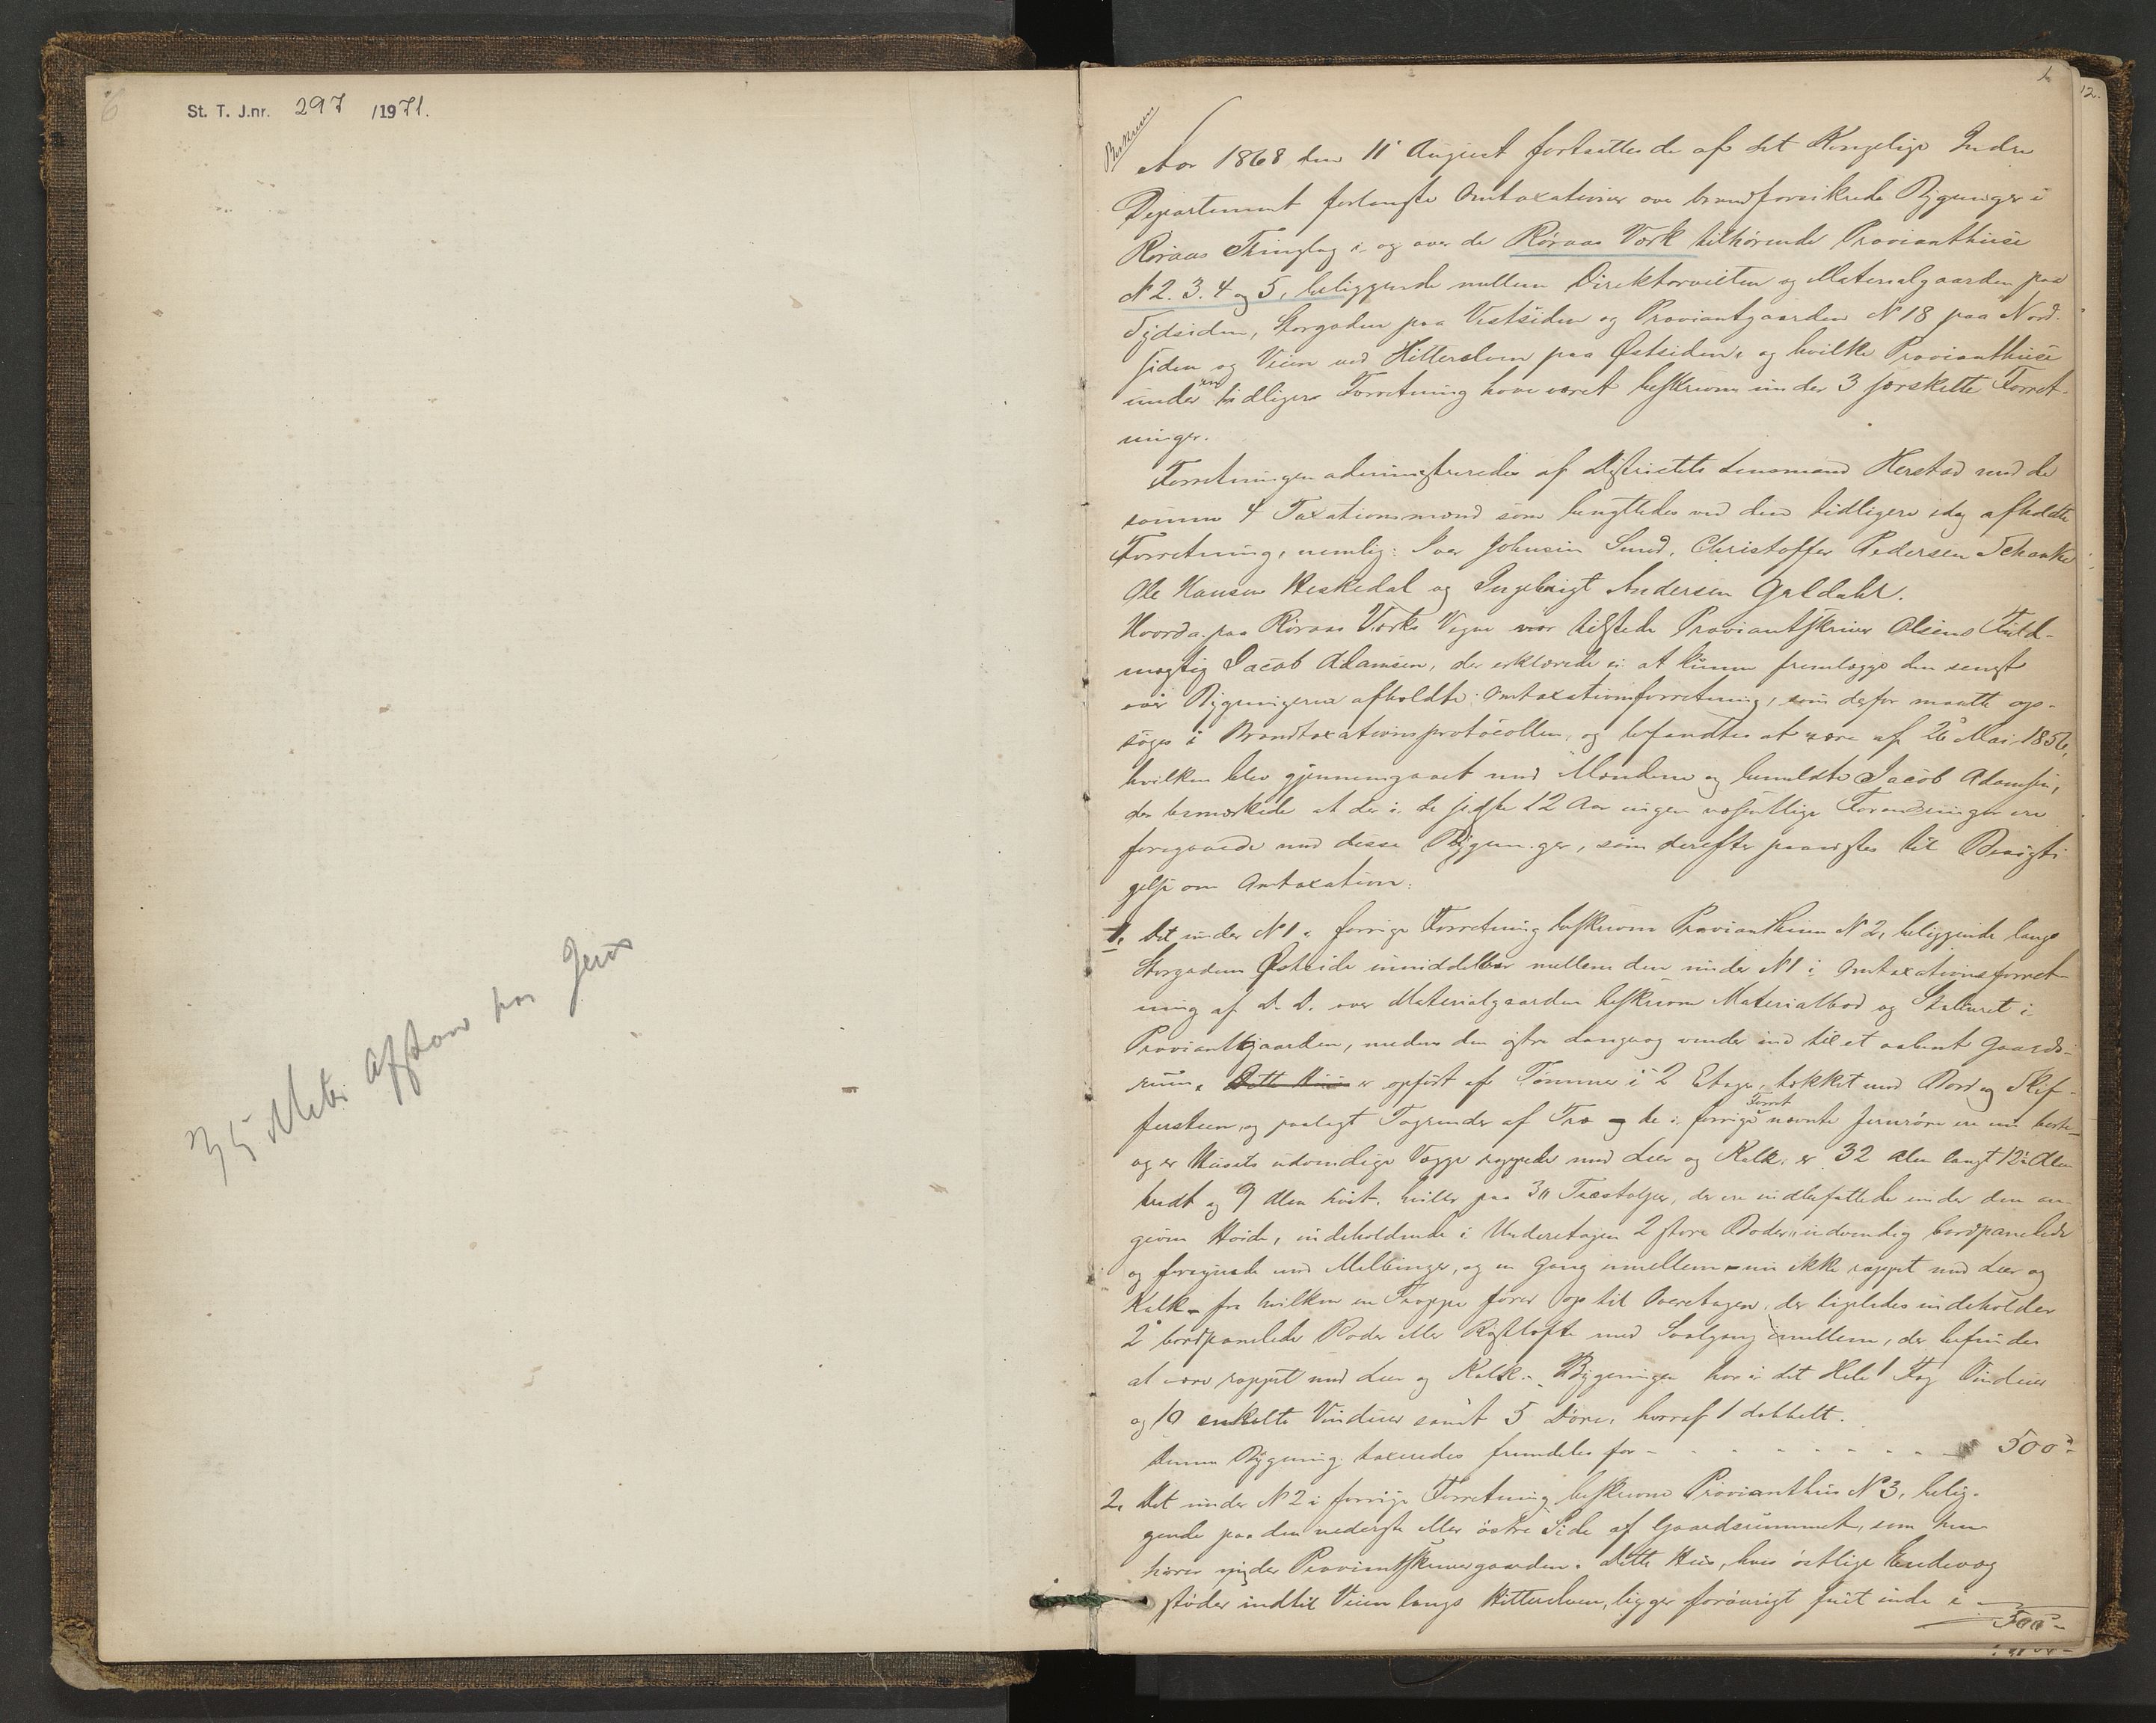 6
St. T. J.nr. 297 /1971.
35 Meter Afstand fra
1
12.
Beskreven
Aar 1868 den 11' August fortsattes de af det Kongelige Indre
Departement forlangte Omtaxationer over brandforsikrede Bygninger i
Røraas Thinglag i og over de Røraas Værk tilhørende Provianthuse
N 2. 3. 4 og 5, beliggende mellem Direktorveiten og Materialgaarden paa
Sydsiden, Storgaden paa Vestsiden og Proviantgaarden N 18 paa Nord-
siden og Veien ved Hitterelven paa Østsiden, og hvilke Provianthuse
under en tidligere Forretning have været beskrevne under 3 særskilte Forret-
ninger.
Forretningen administreredes af Distriktets Lensmand Herstad med de
samme 4 Taxationsmænd som benyttedes ved den tidligere idag afholdte
Forretning, nemlig: Iver Johnsen Sund, Christoffer Pedersen Schanke
Ole Hansen Heskedal og Ingebrigt Andersen Galdahl.
Hvorda. paa Røraas Værks Vegne var tilstede Proviantskriver Olsens Fuld-
mægtig Jacob Adamsen, der erklærede ei at kunne fremlægge den sengst
over Bygningerne afholdte Omtaxationsforretning, som derfor maatte op-
søges i Brandtaxationsprotocollen, og befandtes at være af 26 Mai 1856,
hvilken blev gjennemgaaet med Mændene og bemeldte Jacob Adamsen,
der bemærkede at der i de sidste 12 Aar ingen væsentlige Forandringer ere
foregaaede med disse Bygninger, som derefter paavistes til Besigti
gelse om Omtaxation:
1. Det under N 1 i forrige Forretning beskrevne Provianthuus N 2, beliggende langs
Storgadens Østside umiddelbar mellem den under N 1 i Omtaxationsforret-
ning af D. D. over Materialgaarden beskrevne Materialbod og Skuuret i
Proviantgaarden, medens den østre Langvæg vender ind til et aabent Gaards-
rum, Dette Huus er opført af Tømmer i 2 Etager, tækket med Bord og Skif-
fersteen, og paalagt Tagrender af Træ – de i forrige Forret. nævnte Jernrøre ere nu borte –
og er Husets udvendige Vægge rappede med Leer og Kalk, er 32 Alen langt 12 Alen
bredt og 9 Alen høit, hviler paa 3 Træstolper, der ere indbefattede under den an-
givne Høide, indeholdende i Underetagen 2 store Boder, indvendig bordpanelede
og forsynede med Melbinger, og en Gang imellem – nu ikke rappet med Leer og
Kalk – fra hvilken en Trappe fører op til Overetagen, der ligeledes indeholder
2 bordpanelede Boder eller Kostlofte med Svalgang imellem, der befindes
at være rappet med Leer og Kalk. Bygningen har i det Hele 1 Fag Vinduer
og 10 enkelte Vinduer samt 5 Døre, hvoraf 1 dobbelt.
Denne Bygning taxeredes fremdeles for – – – – – 500 –
2. Det under N 2 i forrige Forretning beskrevne Provianthus N 3, belig-
gende paa den nederste eller østre Side af Gaardsrummet, som hen-
hører under Proviantskrivergaarden. Dette Hus, hvis østlige Endevæg
støder indtil Veien langs Hitterelven, ligger forøvrigt frit inde i
500 –